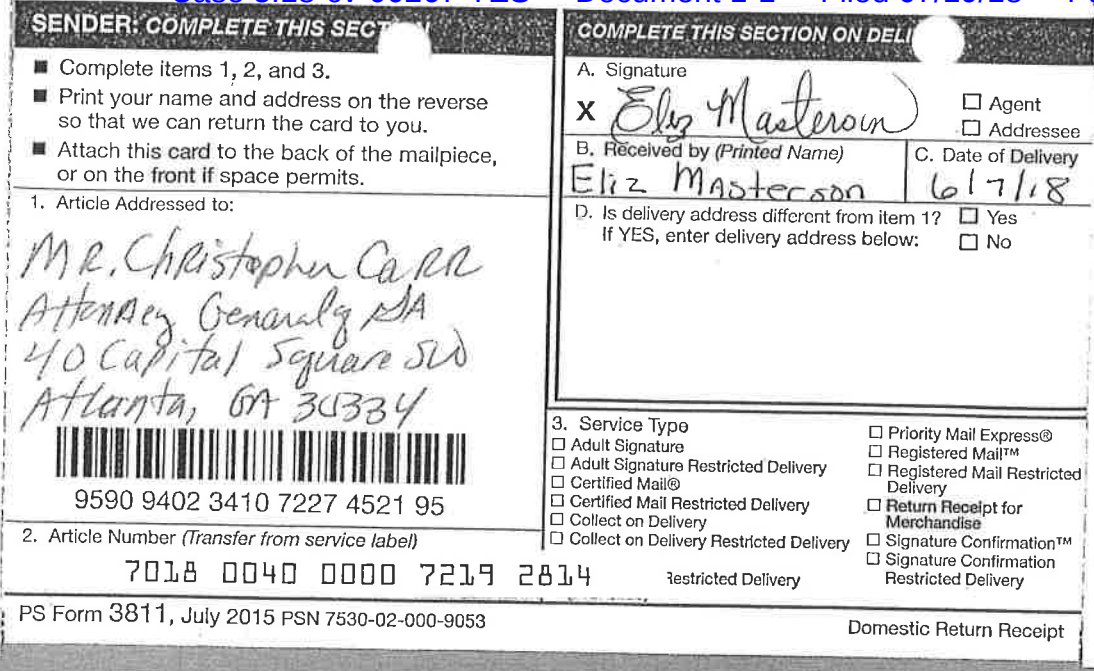 SENDER: COMPLETE THIS SEC
■ Complete items 1, 2, and 3.
■ Print your name and address on the reverse
so that we can return the card to you.
■ Attach this card to the back of the mailpiece,
or on the front if space permits.
1. Article Addressed to:
MR. Christopher CaRR
Attorney General of GA
40 Capital Square SW
Atlanta, GA 30334
9590 9402 3410 7227 4521 95
2. Article Number (Transfer from service label)
7018 0040 0000 7219 2814
COMPLETE THIS SECTION ON DELI
A. Signature
X Eliz Masterson
☐ Agent
☐ Addressee
B. Received by (Printed Name)
Eliz Masterson
C. Date of Delivery
6/7/18
D. Is delivery address different from item 1? ☐ Yes
If YES, enter delivery address below: ☐ No
3. Service Type
☐ Adult Signature
☐ Adult Signature Restricted Delivery
☐ Certified Mail®
☐ Certified Mail Restricted Delivery
☐ Collect on Delivery
☐ Collect on Delivery Restricted Delivery
Restricted Delivery
☐ Priority Mail Express®
☐ Registered Mail™
☐ Registered Mail Restricted
Delivery
☐ Return Receipt for
Merchandise
☐ Signature Confirmation™
☐ Signature Confirmation
Restricted Delivery
PS Form 3811, July 2015 PSN 7530-02-000-9053
Domestic Return Receipt